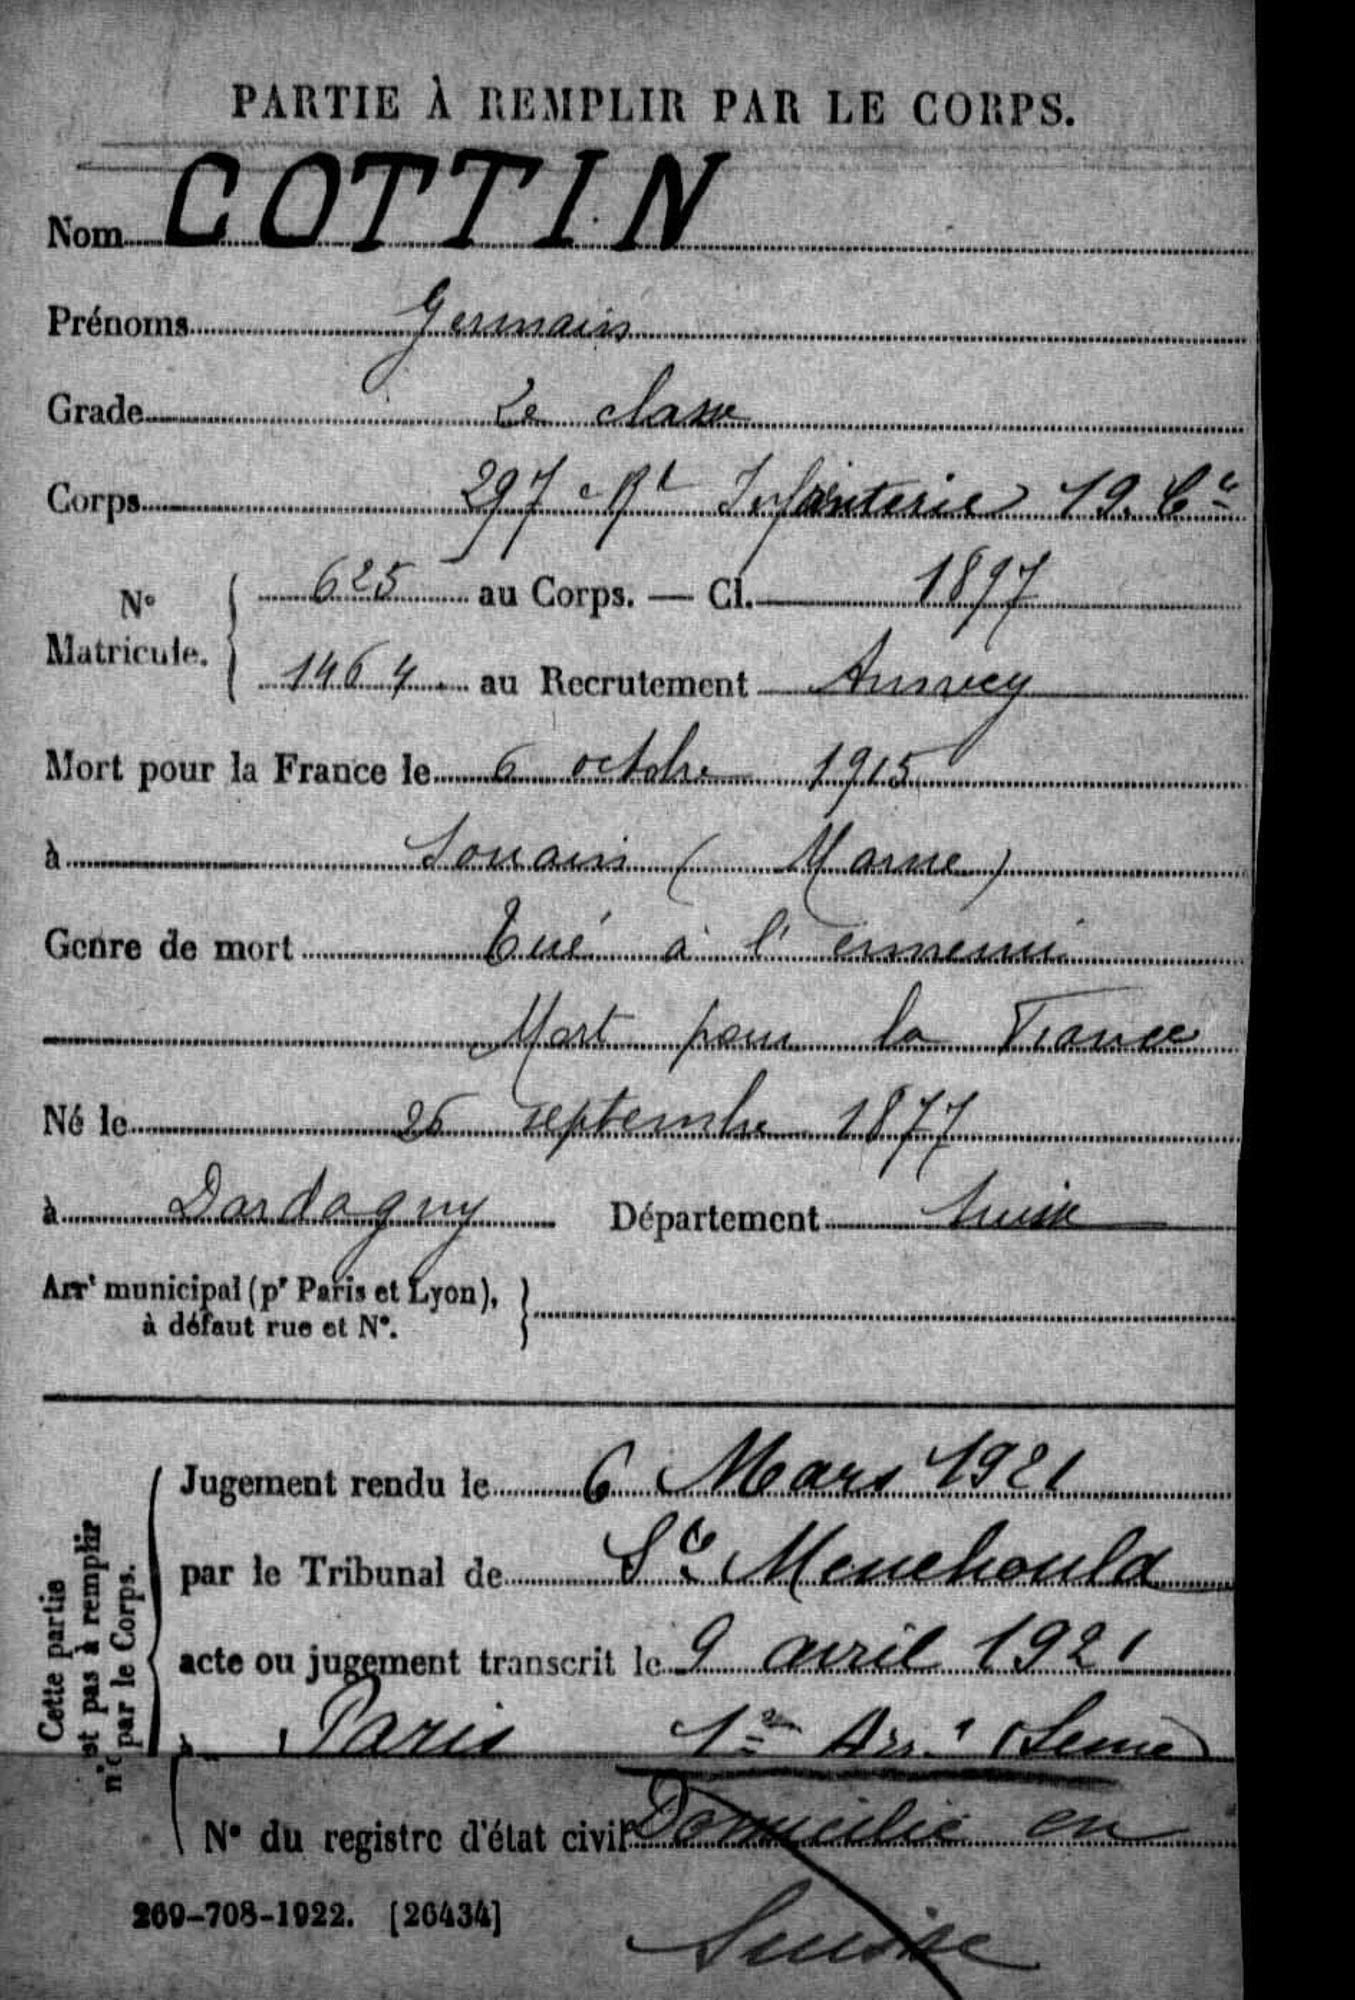 PARTIE À REMPLIR PAR LE CORPS.
Nom COTTIN
Prénoms Germain
Grade 2e classe
Corps 297e Rt Infanterie 19. Cie
No Matricule. { 625 au Corps. — Cl. 1897
1464 au Recrutement Annecy
Mort pour la France le 6 octobre 1915
à Souain (Marne)
Genre de mort Tué à l'ennemi
Mort pour la France
Né le 26 septembre 1877
à Dardagny Département Suisse
Arrt municipal (pr Paris et Lyon), }
à défaut rue et No.
Cette partie
n'est pas à remplir
par le Corps.
Jugement rendu le 6 Mars 1921
par le Tribunal de Ste Menehould
acte ou jugement transcrit le 9 avril 1921
à Paris 1er Arrt (Seine)
No du registre d'état civil Domicilié en
Suisse
269-708-1922. [26434]